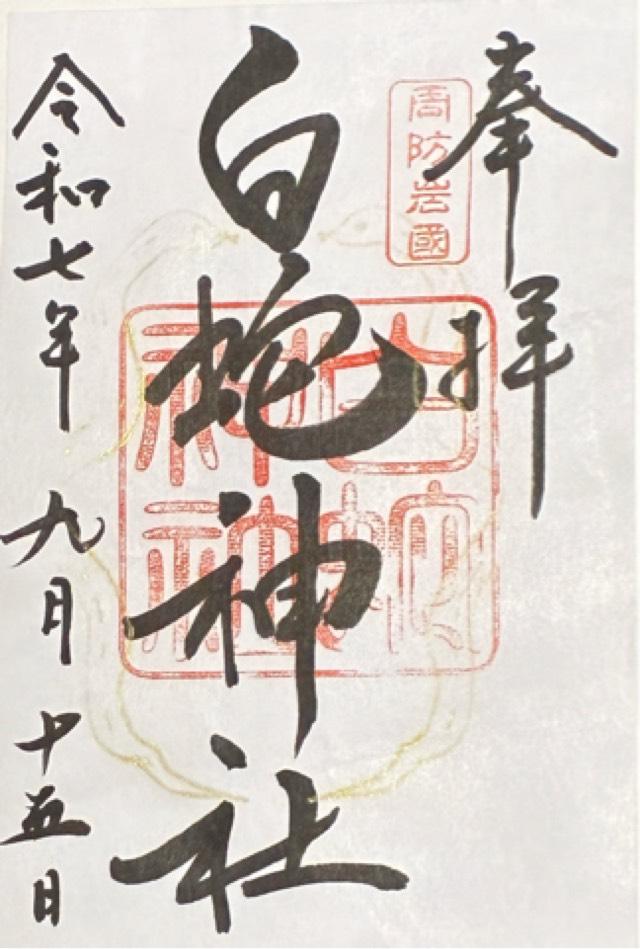 奉拝
周防岩國
白蛇神社
白蛇神社
令和七年 九月 十五日